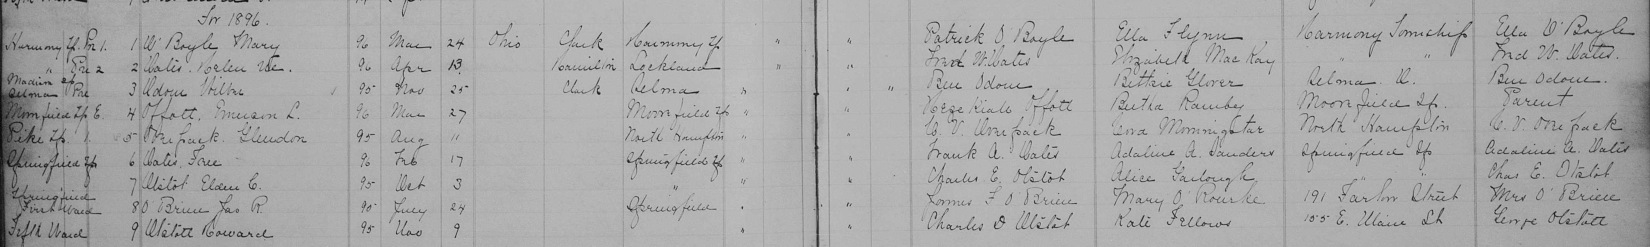 For 1896.
Harmony Tp. Pre 1. 1 O' Boyle Mary 96 Mar 24 Ohio Clark Harmony Tp " " Patrick O'Boyle Ella Flynn Harmony Township Ella O'Boyle
" Pre 2 2 Oates. Helen 96 Apr 13 Hamilton Lockland " " Fred W. Oates Elizabeth MacKay " " Fred W. Oates.
Madison Tp Selma Pre 3 Odom Wilbur 95 Nov 25 Clark Selma " " " Ben Odom Bettie Glover Selma O. Ben Odom.
Moorefield Tp E. 4 Offott. Emerson L. 96 Mar 27 Moorefield Tp " " Offott Bertha Moorefield Tp. Parent
Pike Tp. 1. 5 Glendon 95 Aug 11 North Hampton " " C. V. Morningstar North Hampton C. V.
Springfield Tp 6 Oates. 96 Feb 17 Springfield Tp " " Frank A. Oates Adaline A. Sanders Springfield Tp Adaline A. Oates
7 Olstot Elden C. 95 Oct 3 " " " Charles E. Olstot Alice Garlough " Chas E. Olstot
Springfield First Ward 8 O'Brien Jas R. 95 July 24 Springfield " " James F O'Brien Mary O'Rourke 191 Street Mrs O'Brien
Fifth Ward 9 Olstott Howard 95 Nov 9 " " Charles D Olstot Kate Fellows 155 E. St George Olstott